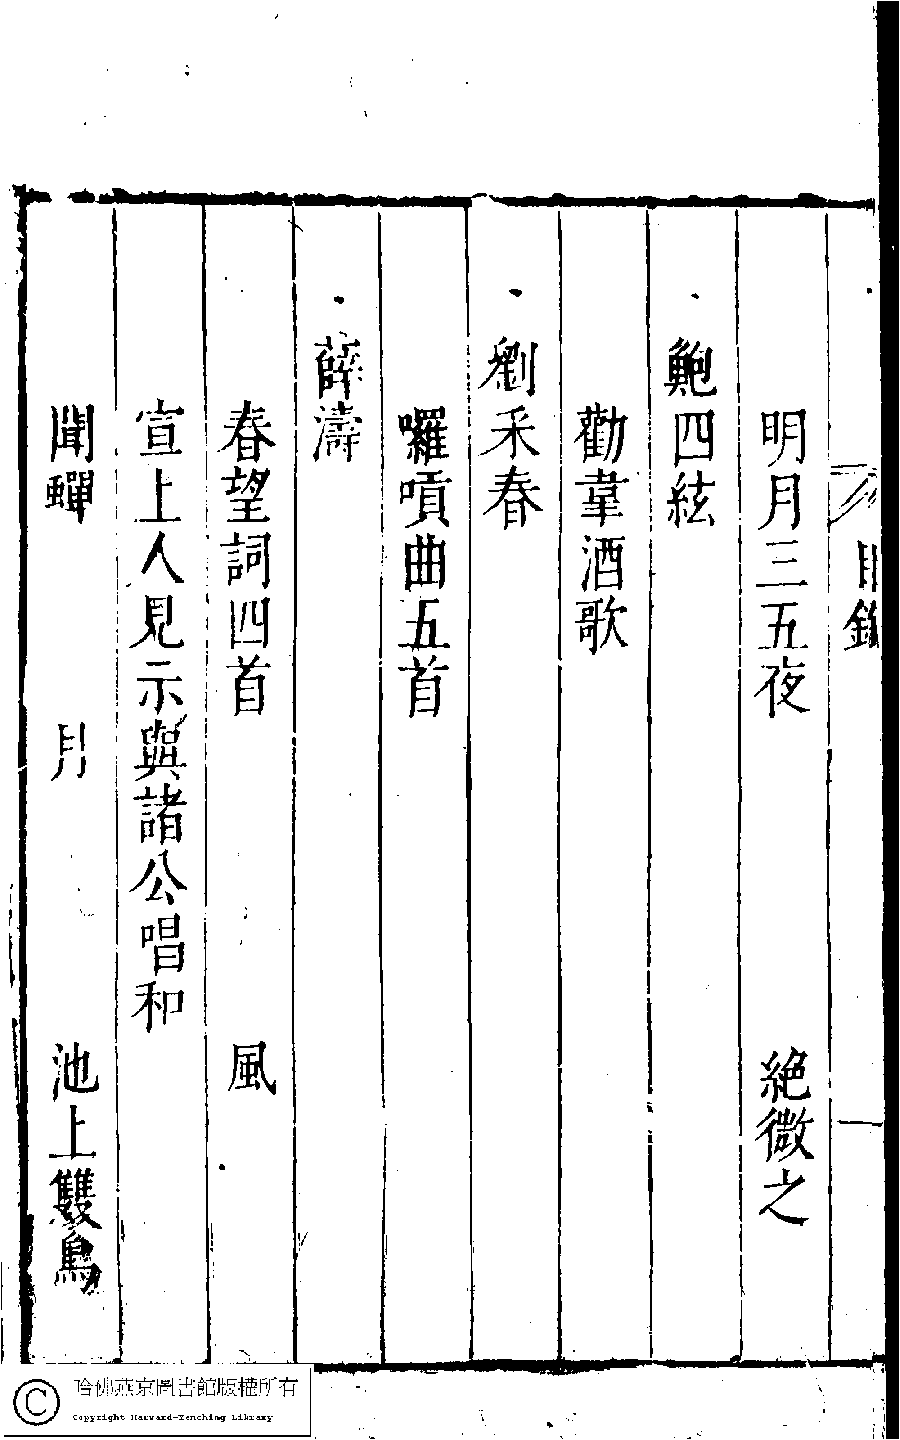 目錄
明月三五夜 絶微之
鮑四絃
勸韋酒歌
劉采春
囉嗊曲五首
薛濤
春望詞四首 風
宣上人見示與諸公唱和
聞蟬 月 池上雙鳥
哈佛燕京圖書館版權所有
Copyright Harvard-Yenching Library